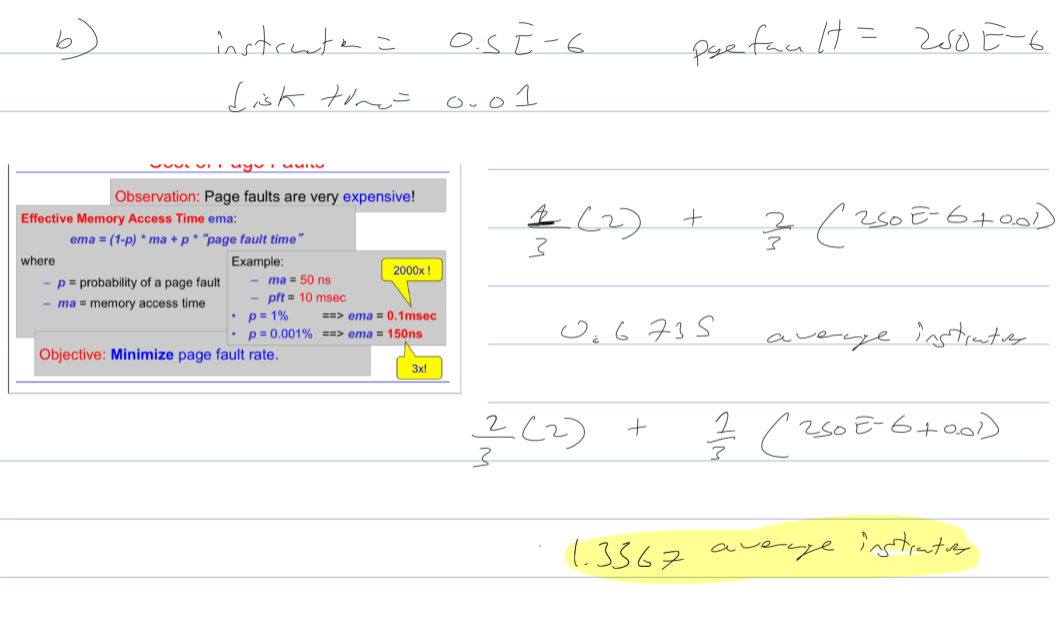 b) instructn = 0.5E-6 pgefault = 250E-6
disk time = 0.01
Cost of Page Faults
Observation: Page faults are very expensive!
Effective Memory Access Time ema:
ema = (1-p) * ma + p * "page fault time"
where
– p = probability of a page fault
– ma = memory access time
Example:
– ma = 50 ns
– pft = 10 msec
• p = 1% ==> ema = 0.1msec
• p = 0.001% ==> ema = 150ns
2000x !
3x!
Objective: Minimize page fault rate.
1/3 (2) + 2/3 (250E-6+0.01)
0.6735 average instructns
2/3 (2) + 1/3 (250E-6+0.01)
1.3367 average instructns